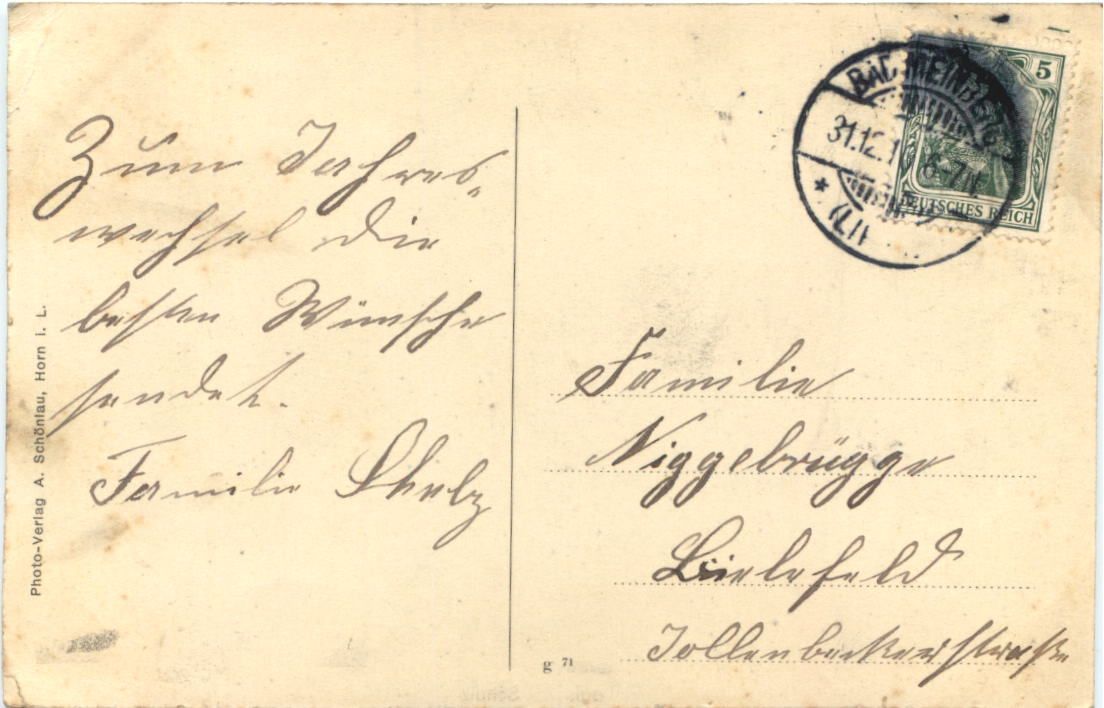 Zum Jahres-
wechsel die
besten Wünsche
sendet.
Familie
Familie
Niggebrügge
Bielefeld
Jöllenbeckerstraße
BAD MEINBERG
31.12.1
6-7N
5
DEUTSCHES REICH
Photo-Verlag A. Schöntau, Horn i. L.
g 71